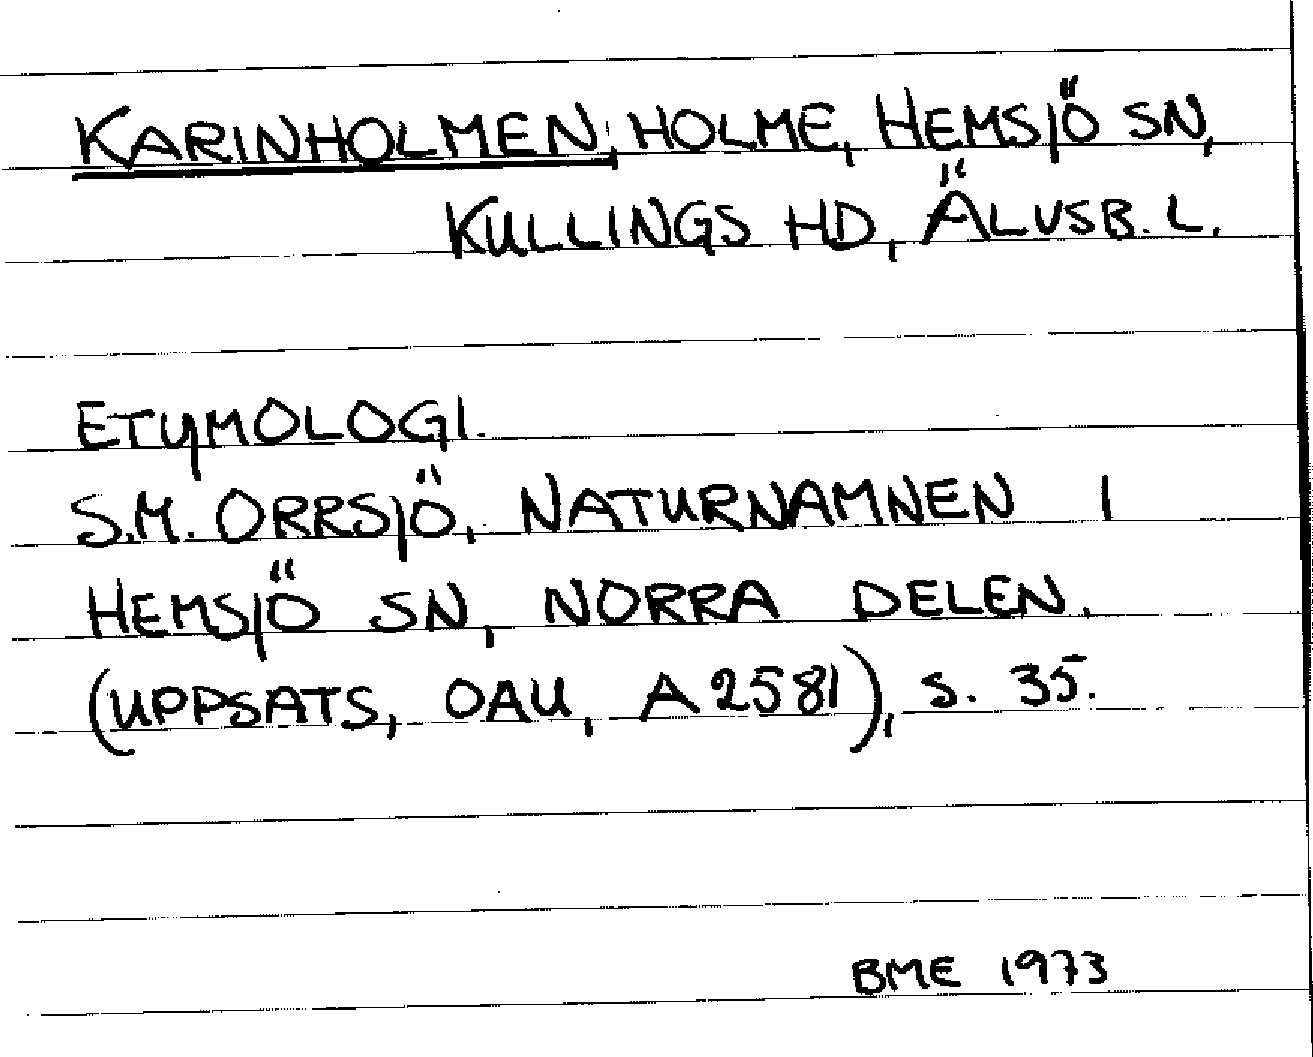 KARINHOLMEN; HOLME, HEMSJÖ SN,
KULLINGS HD, ÄLVSB. L.
ETYMOLOGI.
S.M. ORRSJÖ, NATURNAMNEN I
HEMSJÖ SN, NORRA DELEN.
(UPPSATS, OAU, A 2581), S. 35.
BME 1973